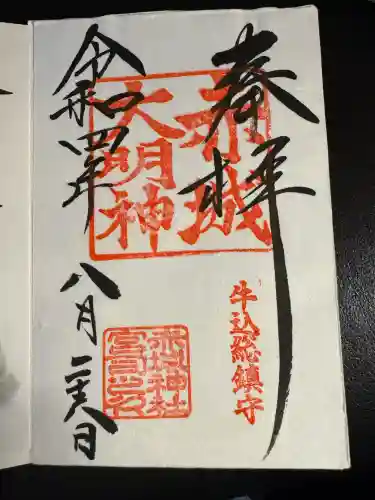 奉拝
赤城
大明神
牛込総鎮守
赤城神社
宮司之印
令和四年
八月二十八日